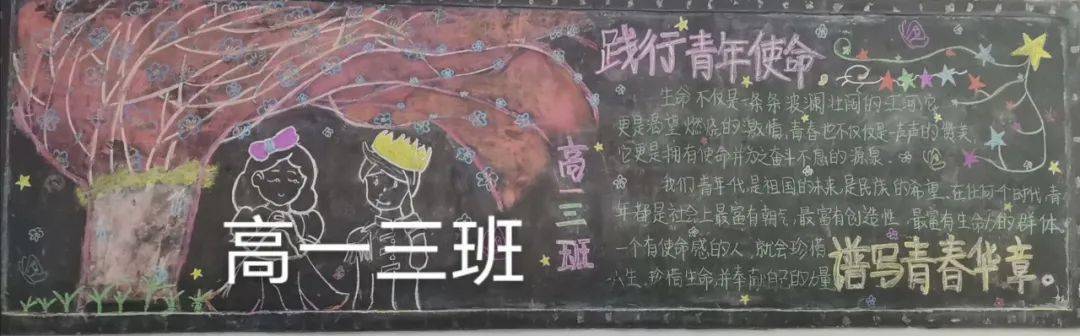 践行青年使命，
生命不仅是一条条波澜壮阔的江河，它
更是渴望燃烧的激情，青春也不仅仅是一声声的赞美，
它更是拥有使命并为之奋斗不息的源泉。
我们青年代是祖国的未来，是民族的希望。在任何个时代，青
年都是社会上最富有朝气，最富有创造性，最富有生命力的群体。
一个有使命感的人，就会珍惜
人生、珍惜生命，并奉献自己的力量
谱写青春华章。
高一三班
高一三班